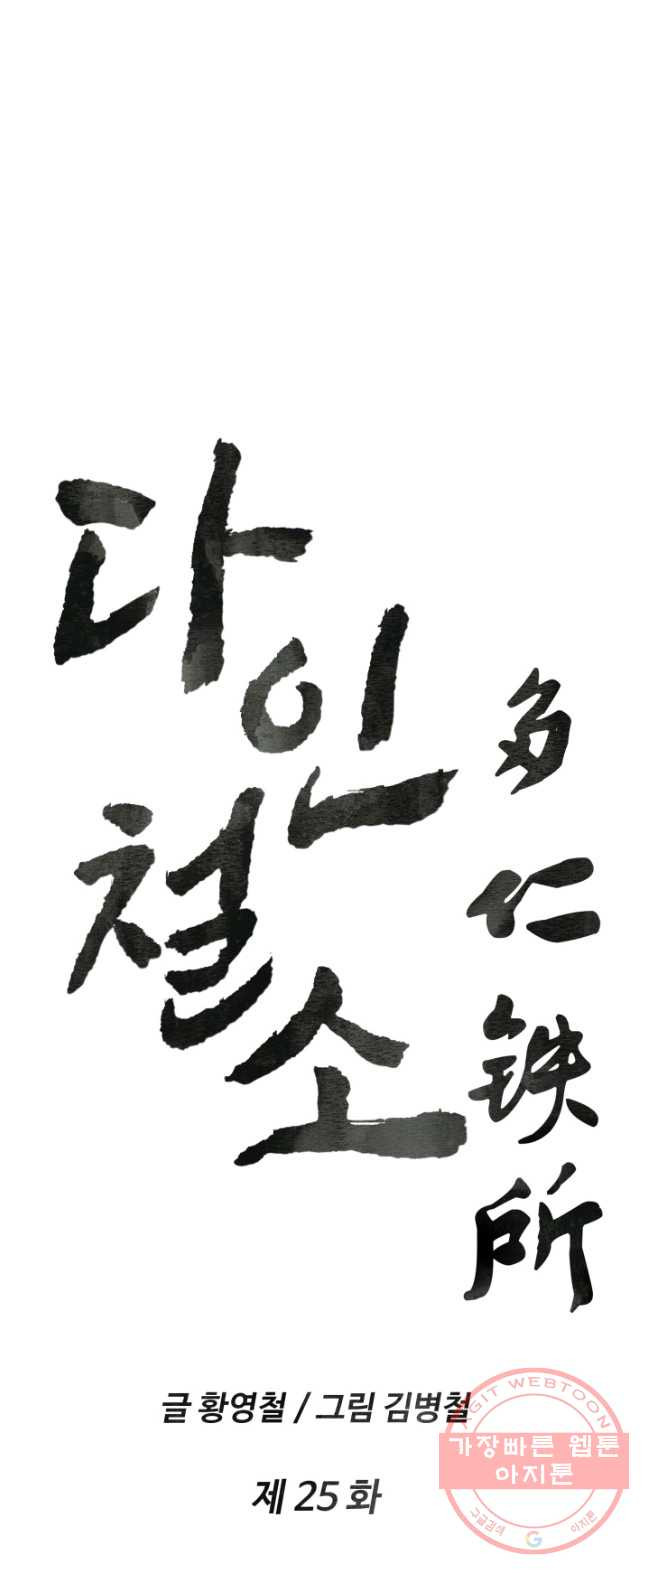 다인
철소
多仁铁所
글 황영철 / 그림 김병철
제 25 화
AGIT WEBTOON
가장빠른 웹툰
아지툰
구글검색 G 아지툰